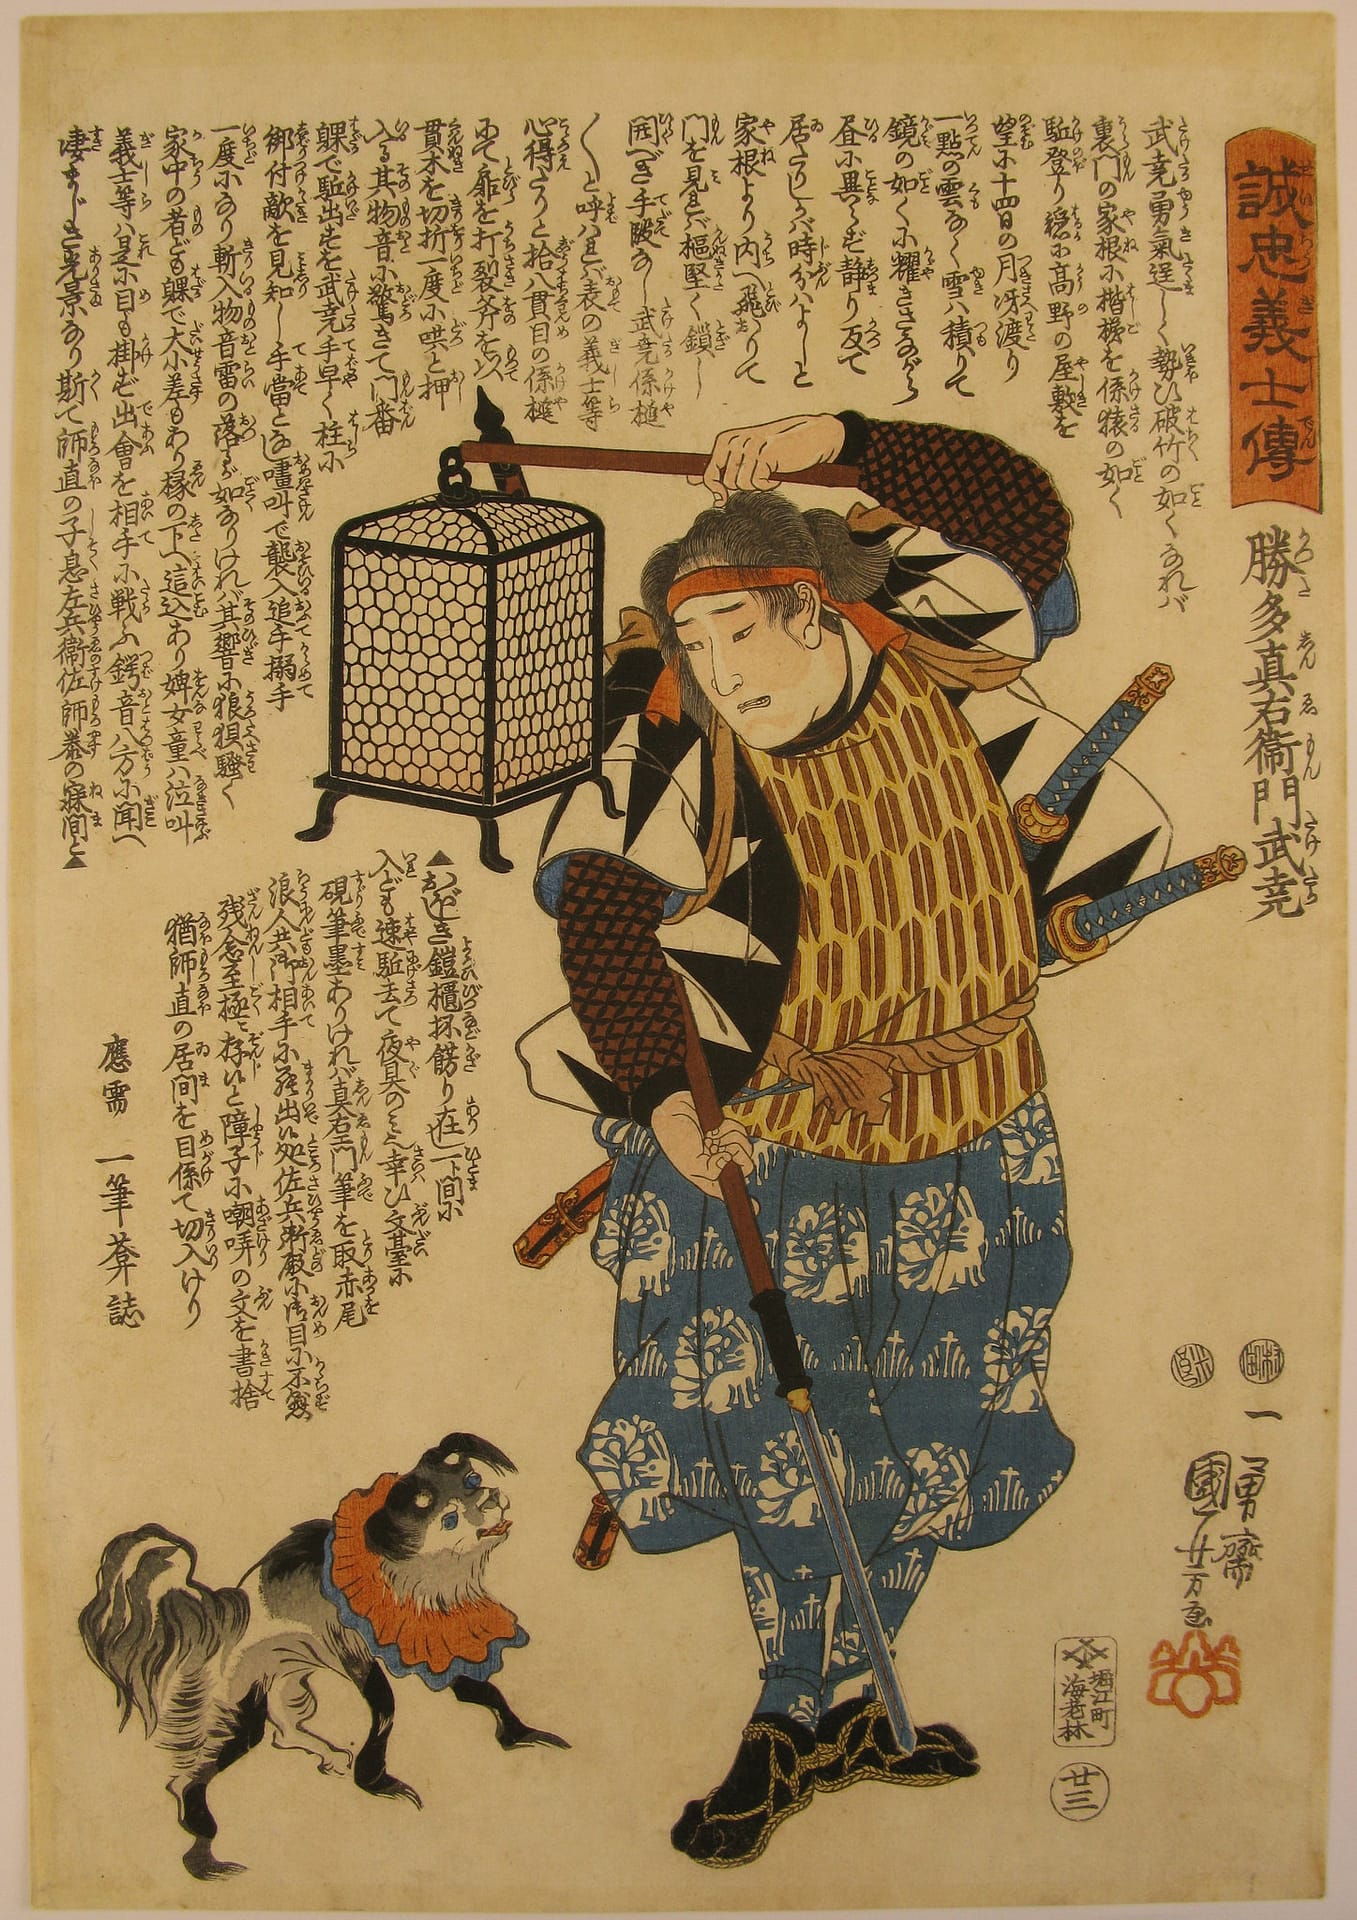 誠忠義士傳
勝多真右衛門武尭
武尭勇氣逞しく勢ひ破竹の如くなれバ
裏門の家根に楷梯を係猿の如く
駈登り穏に高野の屋敷を
望に十四日の月冴渡り
一點の雲なく雪ハ積りて
鏡の如くに耀きさながら
昼に異らず静り反て
居たりしバ時分ハよしと
家根より内へ飛下りて
門を見れバ樞堅く鎖し
開べき手段なし武尭係槌
〳〵と呼ハれバ表の義士等
心得たりと拾八貫目の係槌
にて扉を打裂斧を以
貫木を切折一度に哄と押
入る其物音に驚きて門番
躶で駈出すを武尭手早く柱に
御付敵を見知し手當となし嚄叫で襲入追手搦手
一度になり斬入物音雷の落るが如なりけれバ其響に狼狽騒ぐ
家中の者ども躶で大小差もあり縁の下へ這込あり婢女童ハ泣叫
義士等ハ是に目も掛ず出會を相手に戦ふ鍔音八方に聞へ
凄まじき光景なり斯て師直の子息左兵衛佐師泰の寐間と▲
▲おぼしき鎧櫃抔餝り在一ト間に
入ども速駈去て夜具のミ幸ひ文臺に
硯筆墨ありけれバ真右エ門筆を取赤尾
浪人共御相手に罷出候処佐兵衛殿に御目に不懸
残念至極に存候と障子に嘲哢の文を書捨
猶師直の居間を目係て切入けり
應需
一筆葊誌
村田
米良
一勇齋
國芳画
堀江町
海老林
廿三